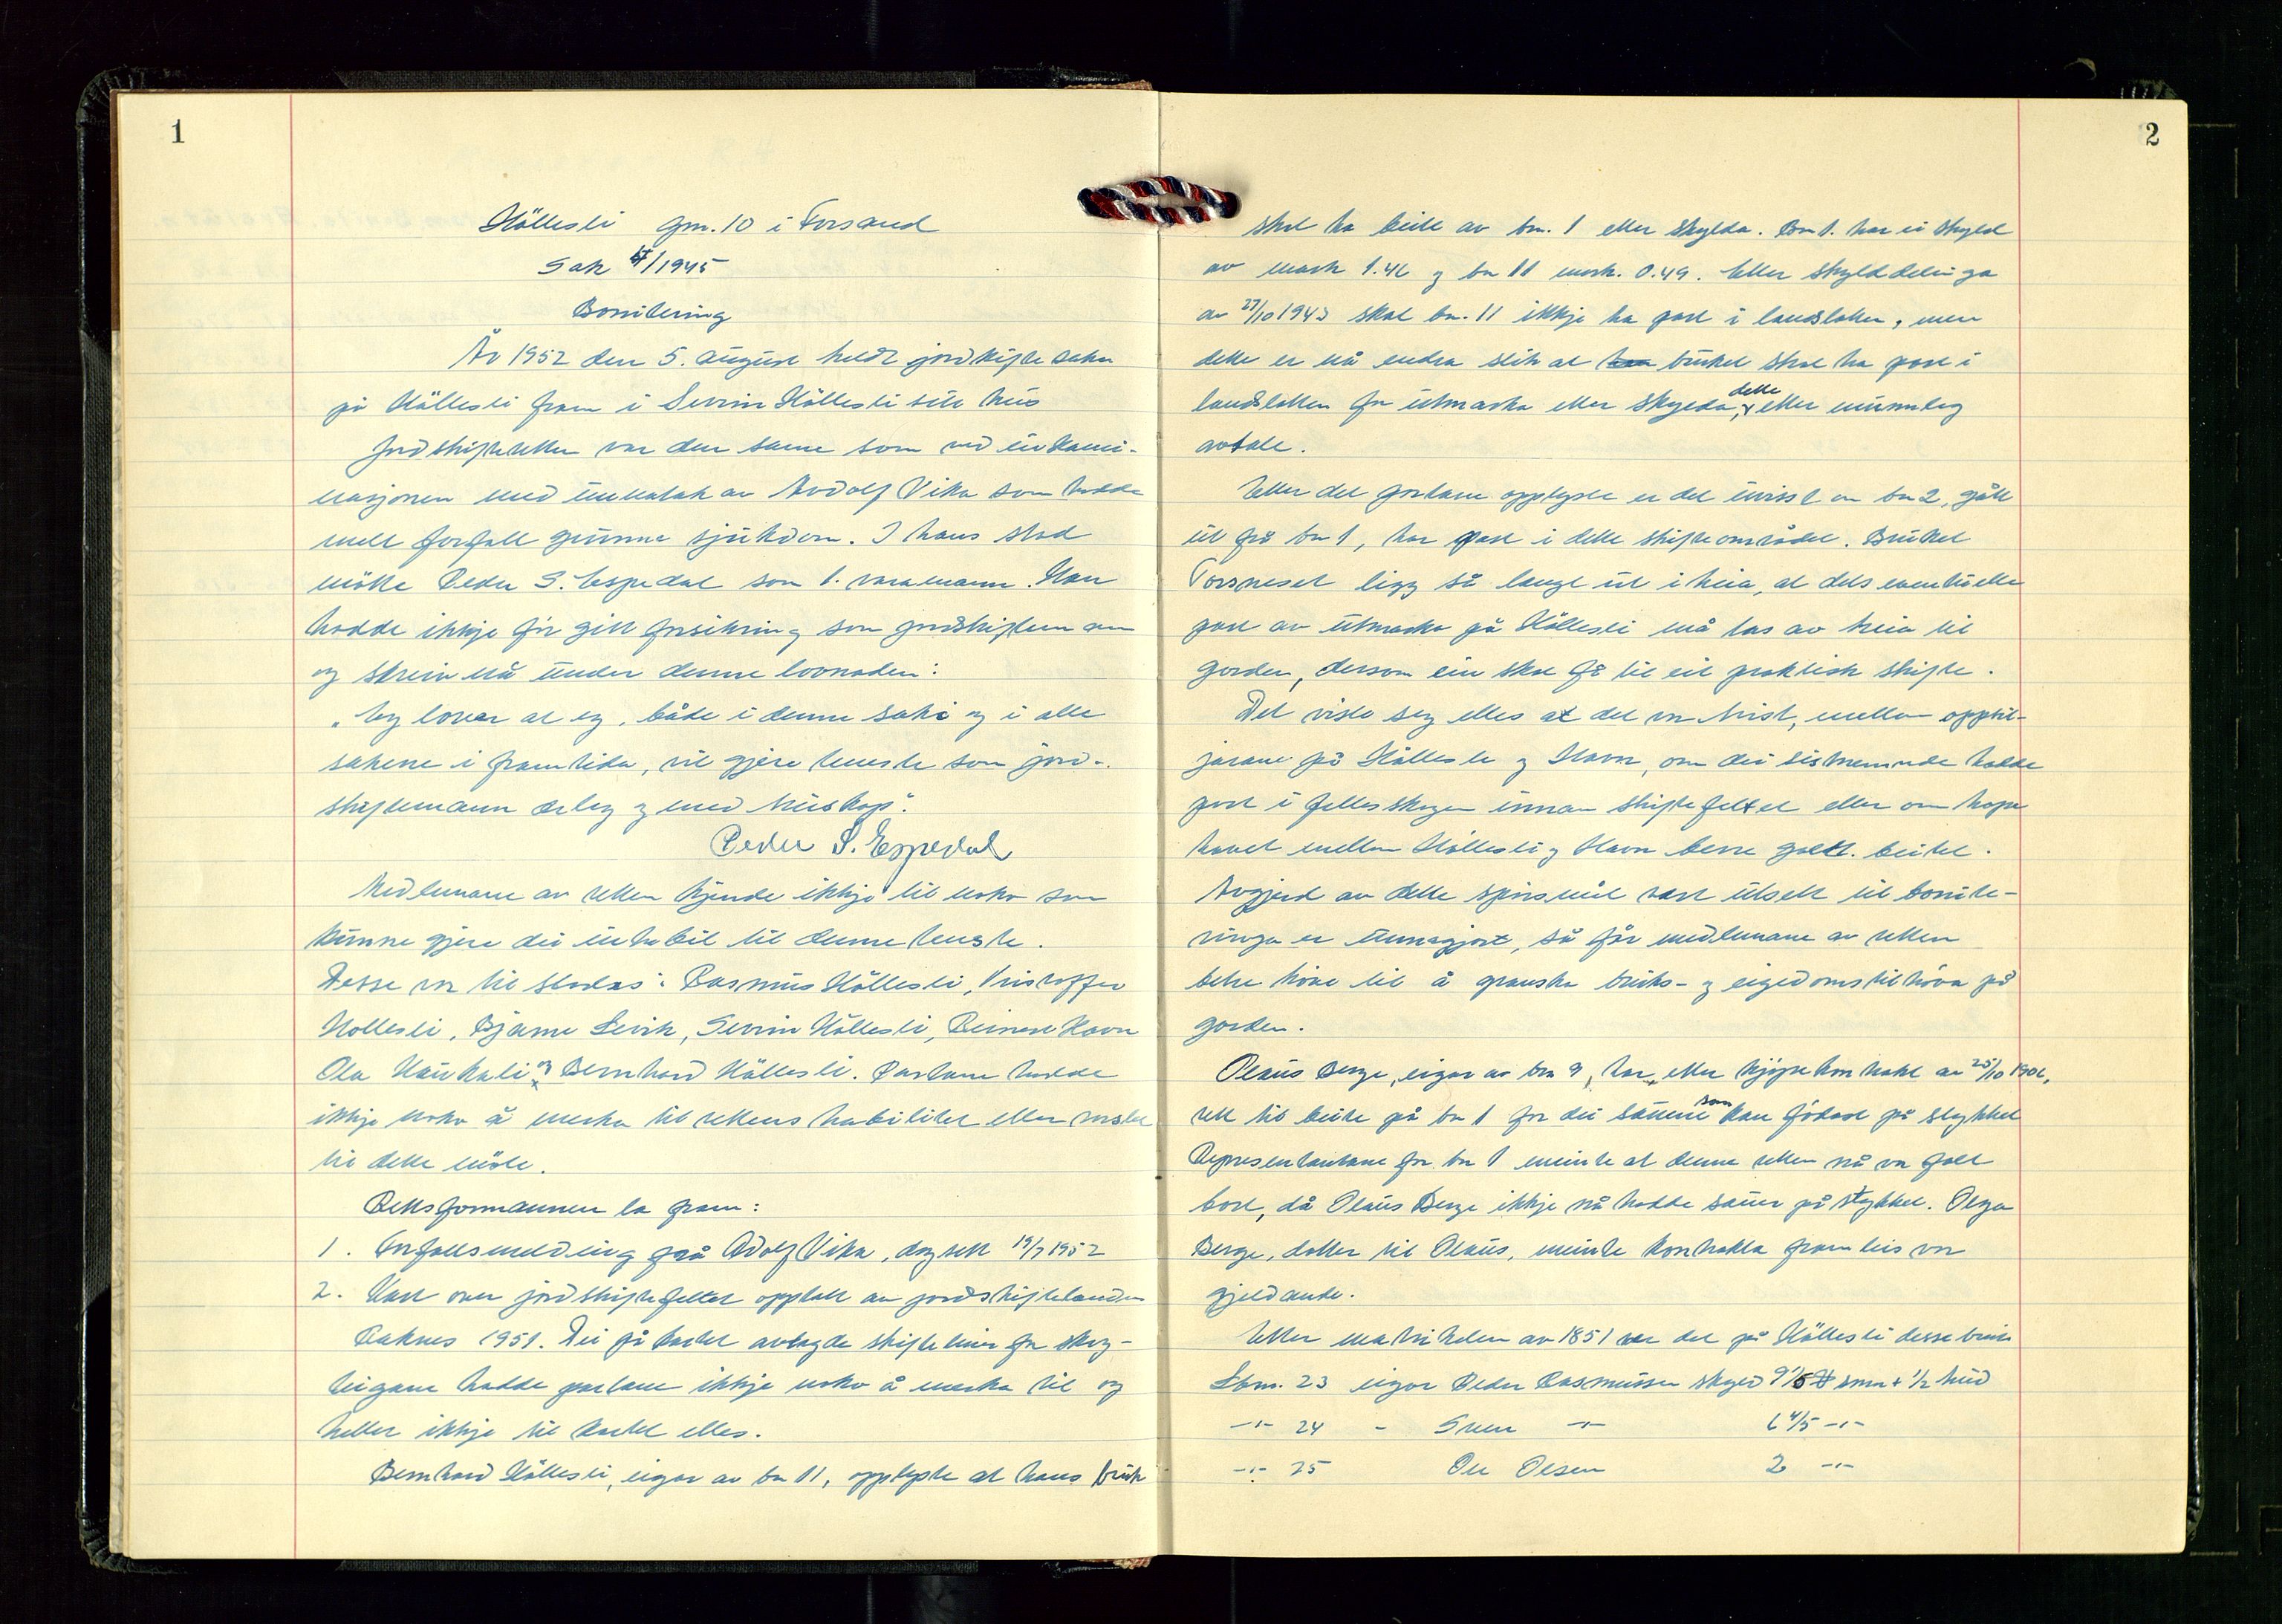 1
Höllesli gnr. 10 i Forsand
Sak 4/1945
Bonitering
År 1952 den 5. august heldt jordskifte saka
på Höllesli fram i Severin Höllesli sitt hus
Jordskifteretten var den same som ved eürkami-
nasjonen med unnatak av Andolf Vika som hadde
meldt forfall grunna sjukdom. I hans stad
møtte Peder S. Espedal som 1. varamann. Han
hadde ikkje før gitt forsikring som jordskiftemann
og skreiv nå under denne lovnaden:
"Eg lovar at eg, både i denne saka og i alle
sakene i framtida, vil gjera teneste som jord-
skiftemann ærleg og med truskap".
Peder S. Espedal
Medlemane av retten kjende ikkje til noko som
kunne gjera dei inhabil til denne teneste.
Desse var til stades: Rasmus Höllesli, Kristoffer
Höllesli, Bjarne Levik, Severin Höllesli, Reinert Havn
Ola Haukali og Bernhard Höllesli. Partane hadde
ikkje noko å merka til rettens habilitet eller varslet
til dette møte.
Rettsformannen la fram:
1. Forfallsmelding frå Adolf Vika, dagsett 19/7 1952
2. Kart over jordskiftefeltet opptatt av jordskiftekandidat
Raknes 1951. Dei på kartet avlagde skiftelinier for skog-
teigane hadde partane ikkje noko å merka til og
heller ikkje til kartet elles.
Bernhard Höllesli, eigar av bn 11, opplyste at hans bruk
2
skal ha beite av bn. 1 etter skylda. Bn 1. har ei skyld
av mark 1.46 og bn 11 mark. 0.49. Etter skylddelinga
av 27/10 1943 skal bn. 11 ikkje ha part i landslotten, men
dette er nå endra slik at bruket skal ha part i
landslotten for utmarka etter skylda, dette etter munnleg
avtale.
Etter det partane opplyste er det uvisst om bn 2, gått
ut frå bn 1, har part i dette skifteområdet. Bruket
Torsneset ligg så langt ut i heia, at dets eventuelle
part av utmarka på Höllesli må tas av heia til
garden, dersom ein skal få til eit praktisk skifte.
Det viste seg elles at det var trist, mellom oppsit-
jarane på Höllesli og Havn, om dei sistnemnde hadde
part i fellesskogen innan skiftefeltet eller om hopa
havet mellom Höllesli og Havn berre galdt beitet.
Avgjerd av dette spørsmål vart utsett til bonite-
ringa er unnagjort, så får medlemane av retten
betre høve til å granska bruks- og eigedomstilhøva på
garden.
Olaus Berge, eigar av bn 9, har, etter kjøpekontrakt av 25/10 1906,
rett til beite på bn 1 for dei sauene som kan födast på stykket
Representantane for bn 1 meinte at denne retten nå var falt
bort, då Olaus Berge ikkje nå hadde sauer på stykket. Olga
Berge, dotter til Olaus, meinte kontrakta framleis var
gjeldande.
Etter matrikelen av 1851 var det på Höllesli desse bruk
Lbnr. 23 eigar Peder Rasmussen skyld 9 1/5 smør + 1/2 hud
-"- 24 - Sven -"- 6 4/5 -"-
-"- 25 Ole Olsen 2 -"-